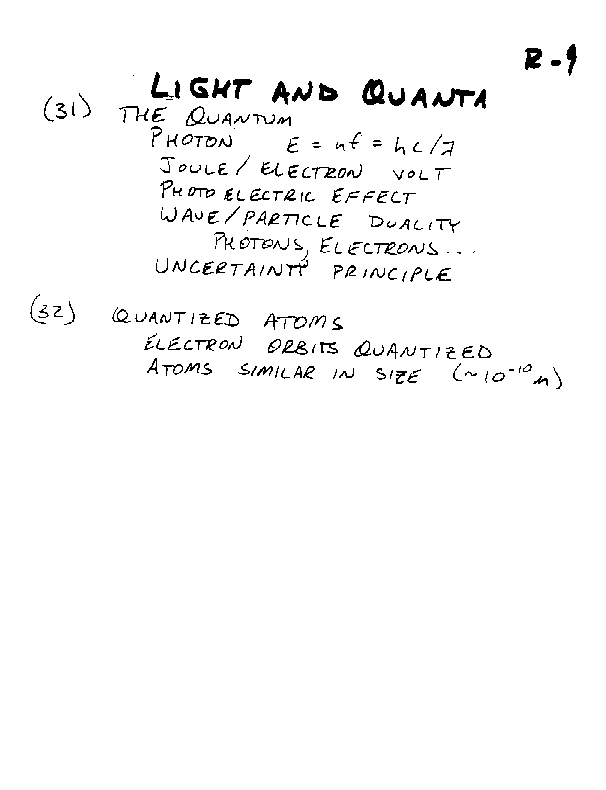 R-9
LIGHT AND QUANTA
(31) THE QUANTUM
PHOTON E = hf = hc/λ
JOULE/ELECTRON VOLT
PHOTOELECTRIC EFFECT
WAVE/PARTICLE DUALITY
PHOTONS, ELECTRONS...
UNCERTAINTY PRINCIPLE
(32) QUANTIZED ATOMS
ELECTRON ORBITS QUANTIZED
ATOMS SIMILAR IN SIZE (~10⁻¹⁰m)